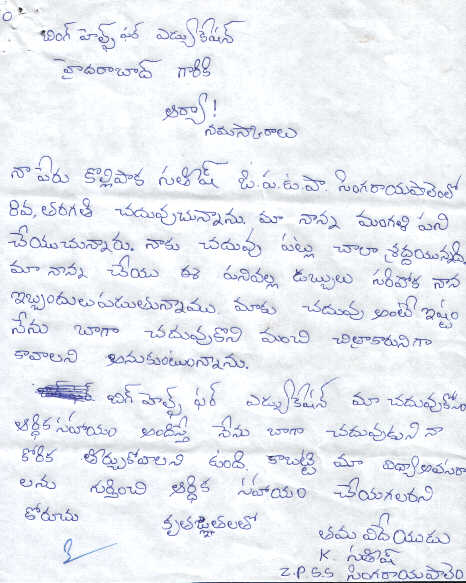 బింగ్ హెల్ప్ ఫర్ ఎడ్యుకేషన్
హైదరాబాద్ గారికి
ఆర్యా!
నమస్కారాలు
నా పేరు కొల్లిపాక సతీష్ జి.ప.ఉ.పా. సింగరాయపాలెంలో
8వ, తరగతి చదువుచున్నాను. మా నాన్న మంగళి పని
చేయుచున్నారు. నాకు చదువు పట్ల చాలా శ్రద్ధయున్నది.
మా నాన్న చేయు ఈ పనివల్ల డబ్బులు సరిపోక నానా
ఇబ్బందులుపడుతున్నాము. మాకు చదువు అంటే ఇష్టం
నేను బాగా చదువుకొని మంచి చిత్రాకారునిగా
కావాలని అనుకుంటున్నాను.
బిగ్ హెల్ప్ ఫర్ ఎడ్యుకేషన్ మా చదువుకోసం
ఆర్థిక సహాయం అందిస్తే నేను బాగా చదువుకుని నా
కోరిక తీర్చుకోవాలని ఉంది. కాబట్టి మా విద్యా అవసరా
లను గుర్తించి ఆర్థిక సహాయం చేయగలరని
కోరుచు కృతజ్ఞతలతో
తమ విదేయుడు
K. సతీష్
Z.P.S.S సింగరాయపాలెం